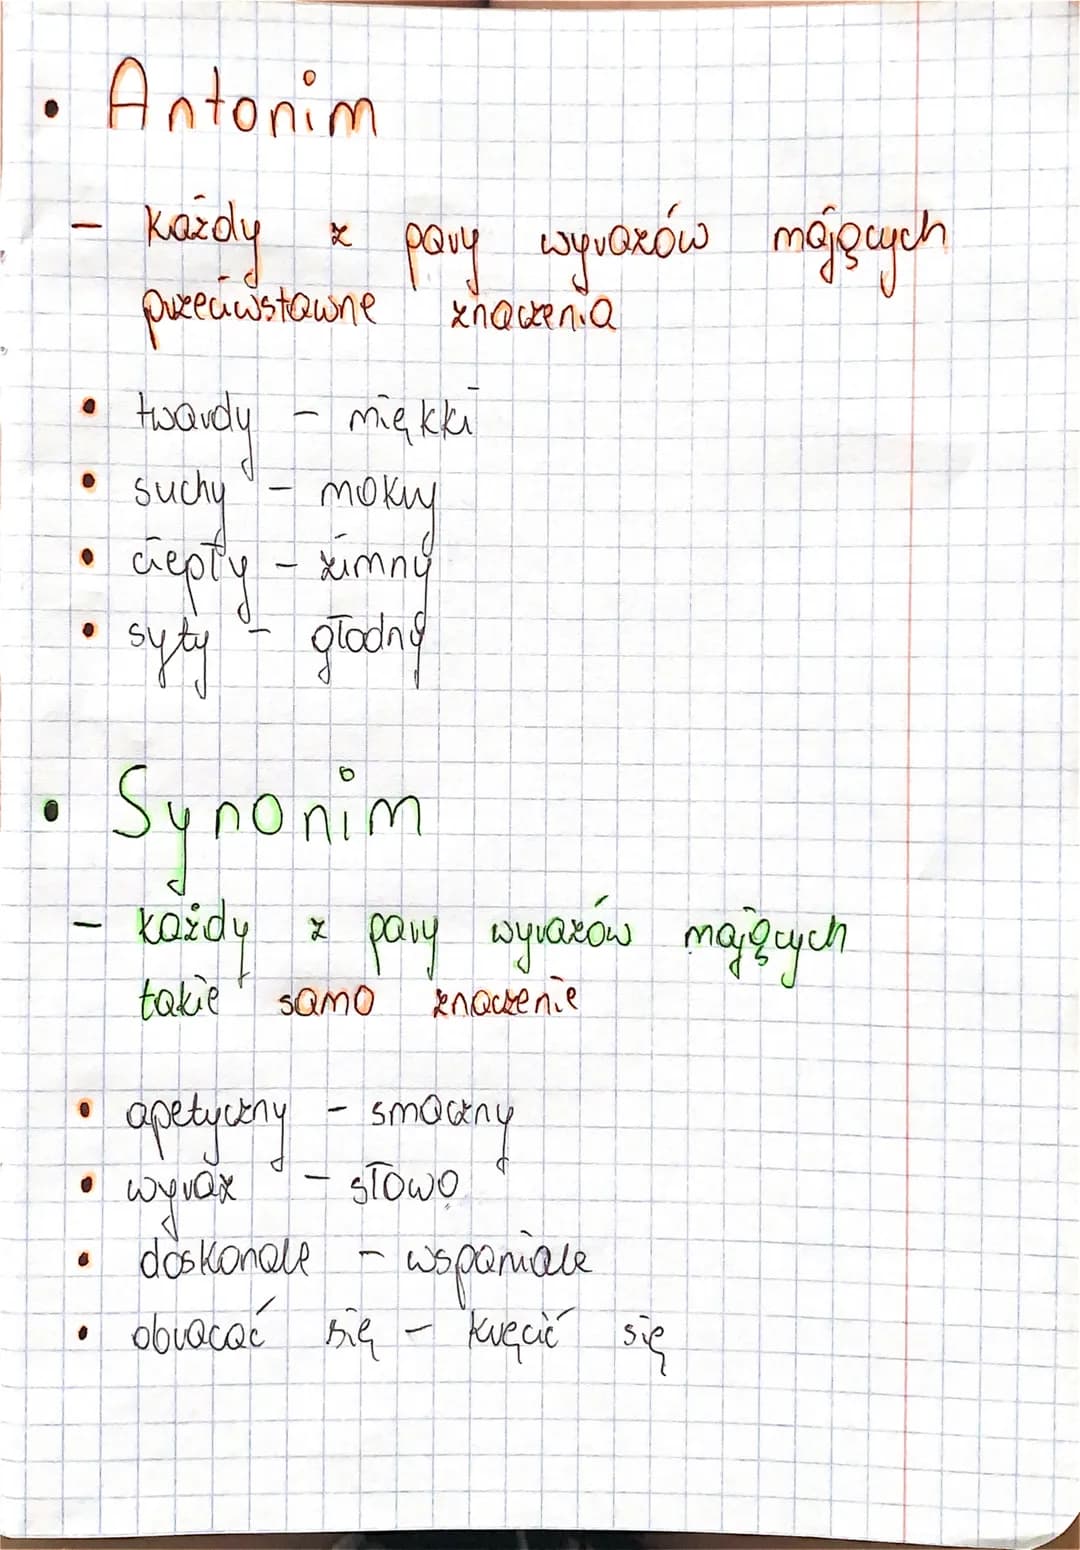 • Antonim
- każdy z pary wyrazów mających
przeciwstawne znaczenia
• twardy - miękki
• suchy - mokry
• ciepły - zimny
• syty - głodny
• Synonim
- każdy z pary wyrazów mających
takie samo znaczenie
• apetyczny - smaczny
• wyraz - słowo
• doskonale - wspaniale
• obracać się - kręcić się